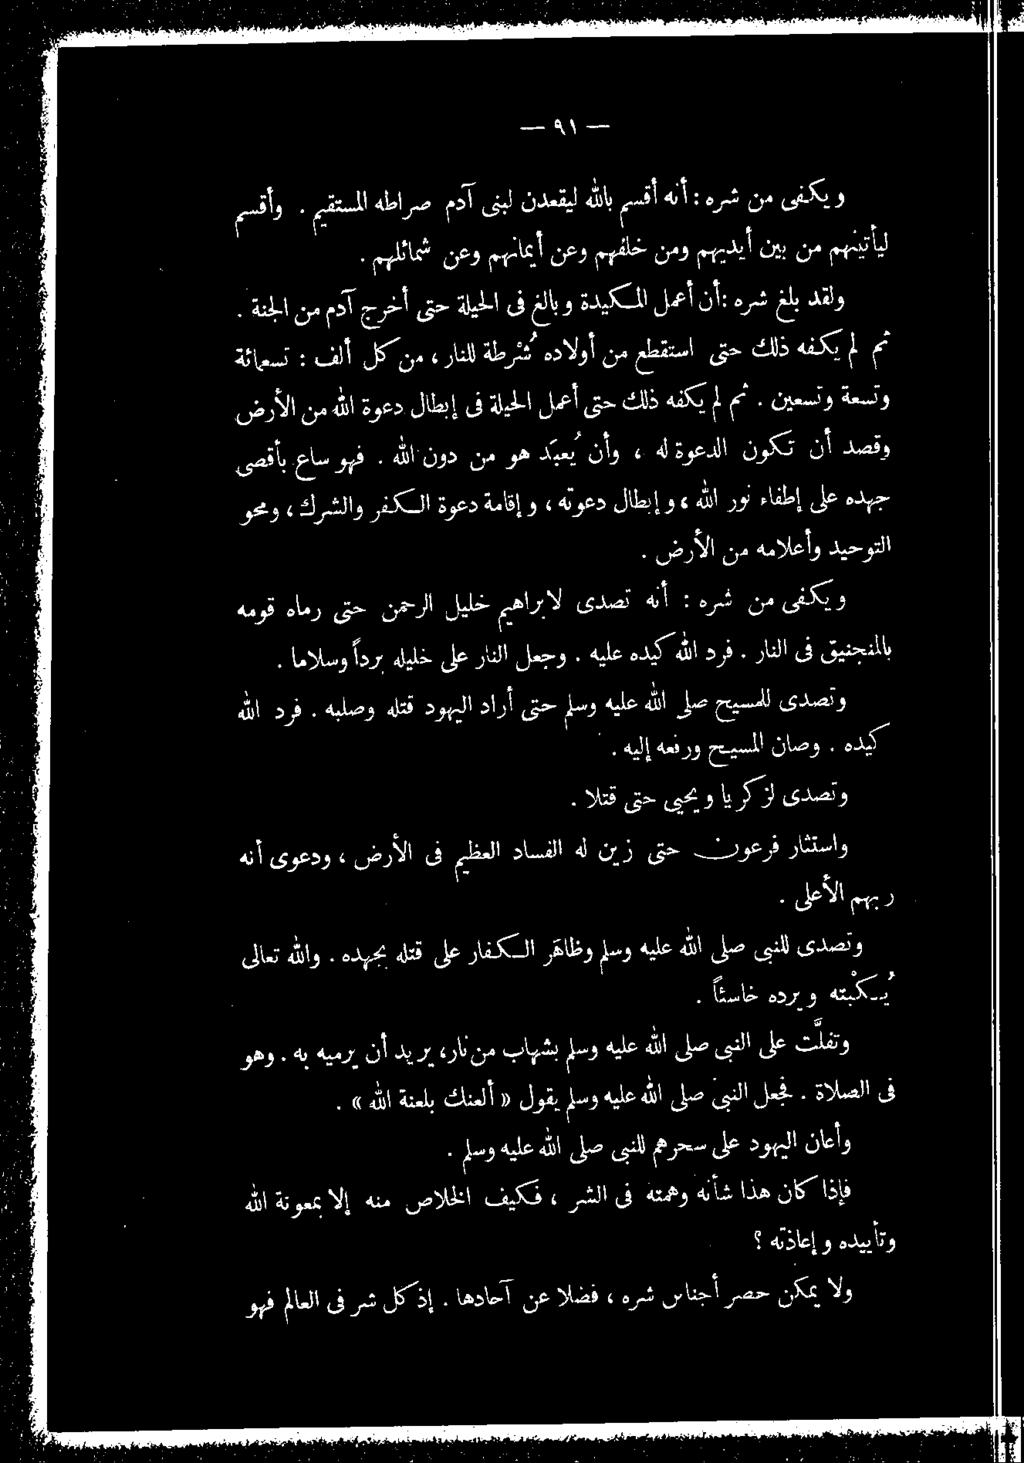 — ٩١ —
ويكفى من شره : أنه أقسم بالله ليقعدن لبنى آدم صراطه المستقيم . وأقسم
ليأتينهم من بين أيديهم ومن خلفهم وعن أيمانهم وعن شمائلهم .
ولقد بلغ شره : أن أعمل المكيدة وبالغ فى الحيلة حتى أخرج آدم من الجنة .
ثم لم يكفه ذلك حتى استقطع من أولاده شُرطة للنار ، من كل ألف : تسعمائة
وتسعة وتسعين . ثم لم يكفه ذلك حتى أعمل الحيلة فى إبطال دعوة الله من الأرض
وقصد أن تكون الدعوة له ، وأن يُعبَد هو من دون الله . فهو ساع بأقصى
جهده على إطفاء نور الله ، وإبطال دعوته ، وإقامة دعوة الكفر والشرك ، ومحو
التوحيد وأعلامه من الأرض .
ويكفى من شره : أنه تصدى لابراهيم خليل الرحمن حتى رماه قومه
بالمنجنيق فى النار . فرد الله كيده عليه . وجعل النار على خليله برداً وسلاما .
وتصدى للمسيح صلى الله عليه وسلم حتى أراد اليهود قتله وصلبه . فرد الله
كيده . وصان المسيح ورفعه إليه .
وتصدى لزكريا ويحيى حتى قتلا .
واستثار فرعون حتى زين له الفساد العظيم فى الأرض ، ودعوى أنه
ربهم الأعلى .
وتصدى للنبى صلى الله عليه وسلم وظاهَر الكفار على قتله بجهده . والله تعالى
يُكْبته ويرده خاسئاً .
وتفلَّت على النبى صلى الله عليه وسلم بشهاب من نار ، يريد أن يرميه به . وهو
فى الصلاة . فجعل النبى صلى الله عليه وسلم يقول « ألعنك بلعنة الله » .
وأعان اليهود على سحرهم للنبى صلى الله عليه وسلم .
فإذا كان هذا شأنه وهمته فى الشر ، فكيف الخلاص منه إلا بمعونة الله
وتأييده وإعاذته ؟
ولا يمكن حصر أجناس شره ، فضلا عن آحادها . إذ كل شر فى العالم فهو